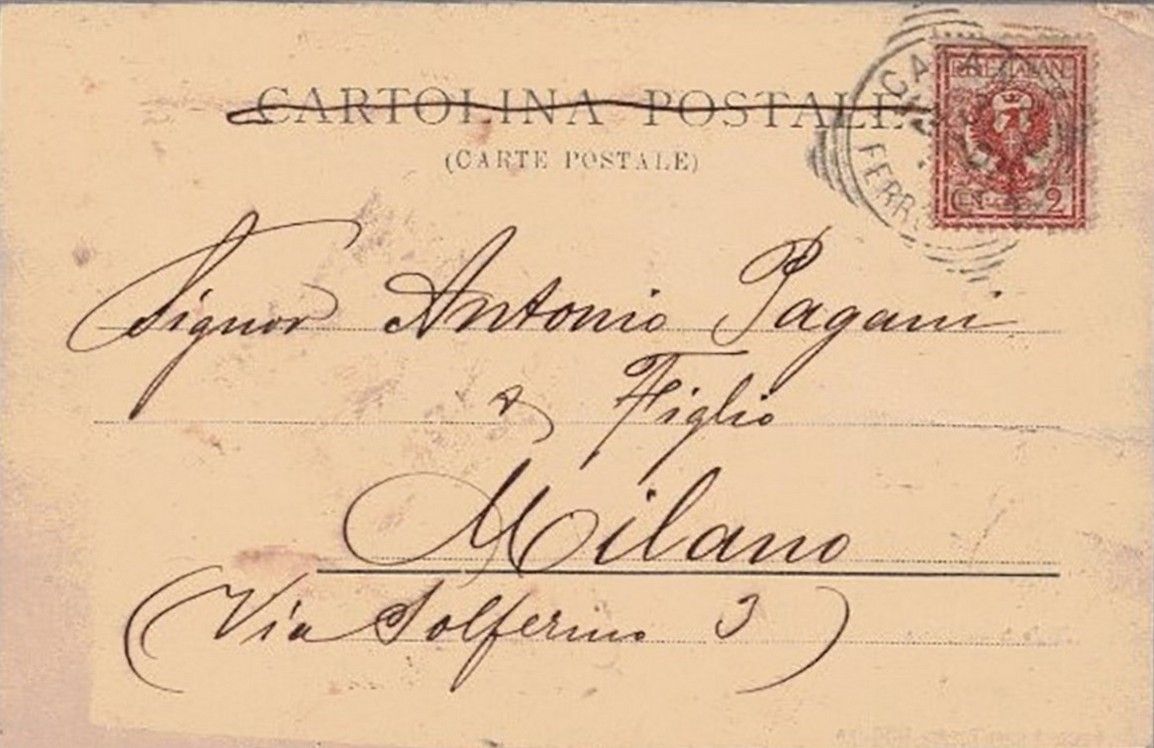 CARTOLINA POSTALE
(CARTE POSTALE)
POSTE ITALIANE
CENT. 2
Signor Antonio Pagani
& Figlio
Milano
(Via Solferino 3)